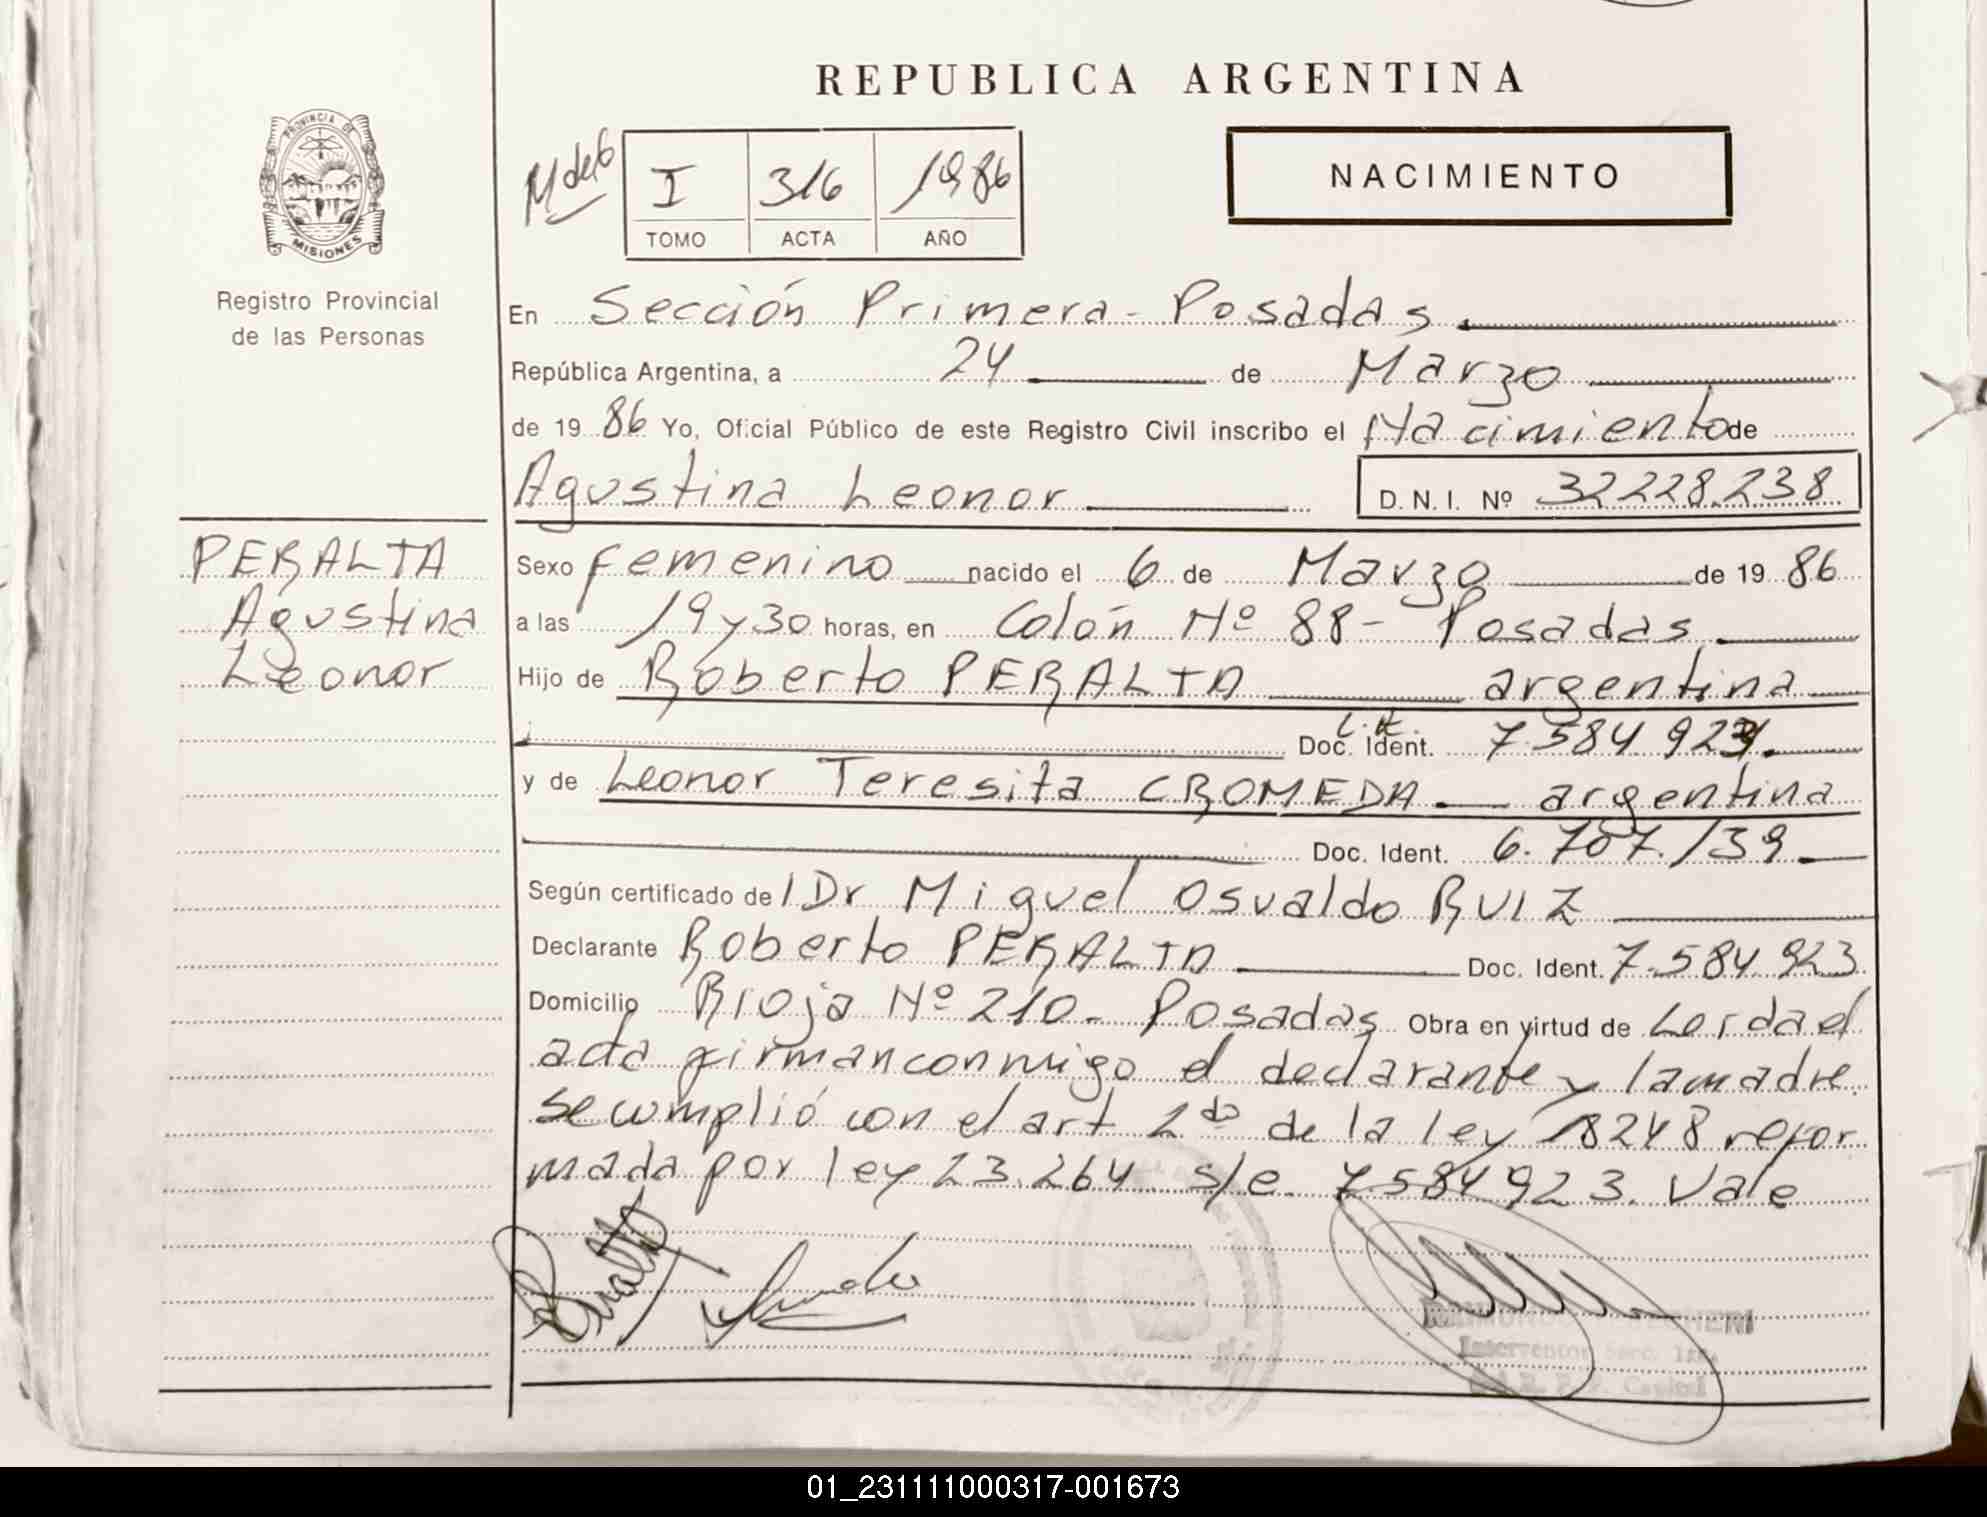 REPUBLICA ARGENTINA
PROVINCIA DE
MISIONES
Registro Provincial
de las Personas
I 316 1986
TOMO ACTA AÑO
NACIMIENTO
En Sección Primera - Posadas
República Argentina, a 24 de Marzo
de 19 86 Yo, Oficial Público de este Registro Civil inscribo el Nacimiento de
Agustina Leonor D.N.I. Nº 32.228.238
PERALTA
Agustina
Leonor
Sexo femenino nacido el 6 de Marzo de 19 86
a las 19 y 30 horas, en Colón Nº 88 - Posadas
Hijo de Roberto PERALTA argentina
Doc. Ident. 7.584.923
y de Leonor Teresita CROMEDA argentina
Doc. Ident. 6.707.139
Según certificado de l Dr Miguel Osvaldo RUIZ
Declarante Roberto PERALTA Doc. Ident. 7.584 923
Domicilio Rioja Nº 210 - Posadas Obra en virtud de Lorda el
acta firman conmigo el declarante y la madre
se cumplió con el art 2do de la ley 18248 refor
mada por ley 23.264 s/e. 7584923. Vale
Interventor Secc. 1ra.
01_231111000317-001673